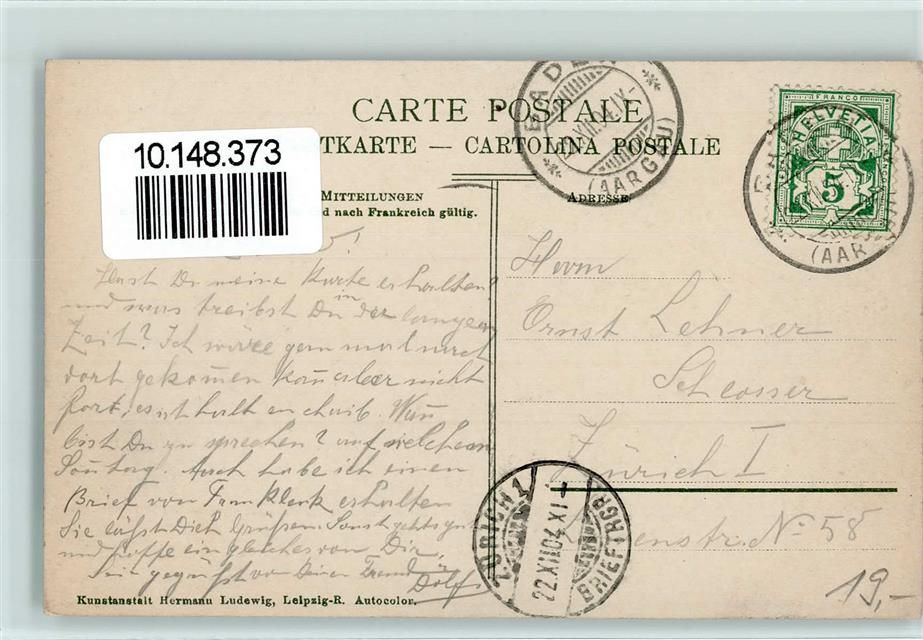 CARTE POSTALE
TKARTE — CARTOLINA POSTALE
10.148.373
MITTEILUNGEN
d nach Frankreich gültig.
ADRESSE
BADEN
(AARGAU)
FRANCO
HELVETIA
5
(AAR
Hast Du meine Karte erhalten?
und was treibst Du in der langen
Zeit? Ich wäre gern mal nach
dort gekommen kann aber nicht
fort, es ist halt en chaib. Wann
bist Du zu sprechen? auf welchem
Sonntag. Auch habe ich einen
Brief von erhalten
Sie lässt Dich grüssen. Sonst geht's gut
und hoffe ein gleiches von Dir.
Sei gegrüsst von Deinem Freund Dölf
Herrn
Ernst Lehner
Schlosser
Zürich I
enstr. No 58
ZÜRICH 1
22.XII.04.XI-
BRIEFTRGR.
19,-
Kunstanstalt Hermann Ludewig, Leipzig-R. Autocolor.